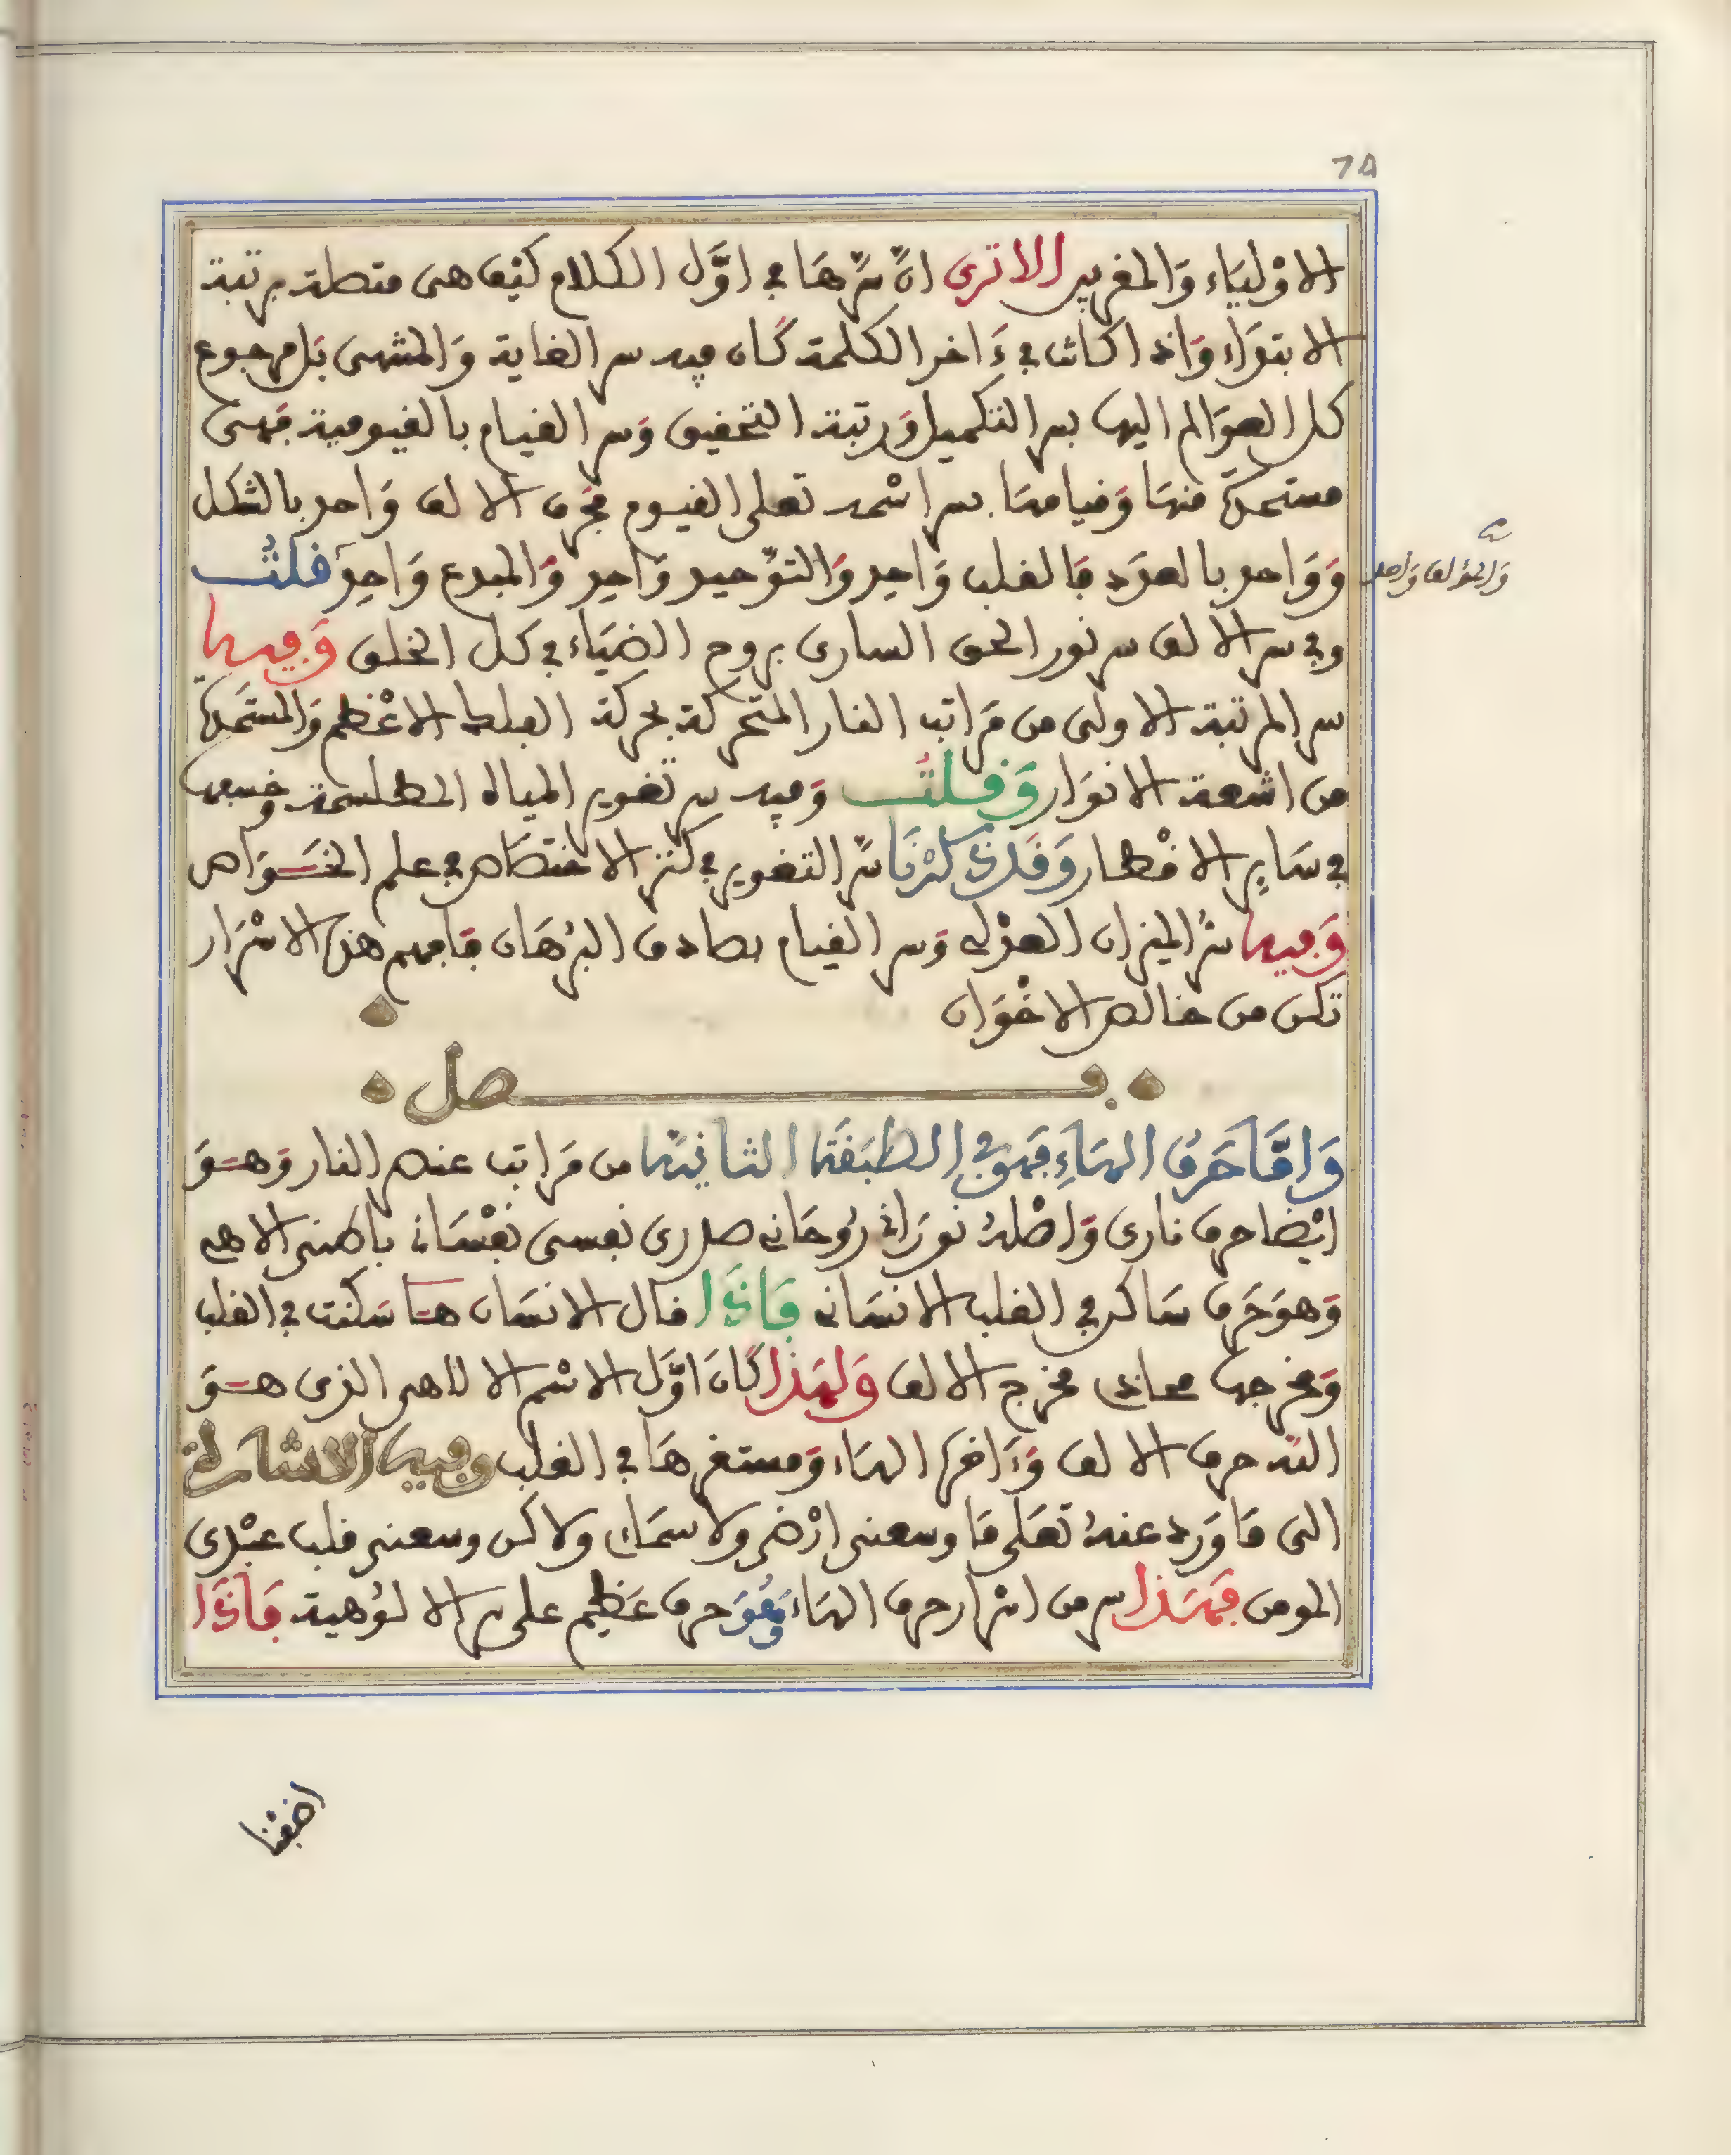 74
الاولياء والمغربين الا ترى انّ سرّها في اوّل الكلام كيف هي متصلة برتبة
الابتداء واذا كانت في ءاخر الكلمة كان فيه سر الغاية والمنتهى بل مرجوع
كل العوالم اليها بسر التكميل ورتبة التحقيق وسر القيام بالقيومية فهي
مستمدة منها وقيامها بسر اسمه تعلى القيوم فحرف الالف واحد بالشكل
وواحد بالعدد فالقلب واحد والتوحيد واحد والمبدع واحد قلت
والمؤلف واحد
وفي سر الالف سر نور الحق الساري بروح الضياء في كل الخلق وفيها
سر المرتبة الاولى من مراتب النار المتحركة بحركة الفلك الاعظم والمستمدة
من اشعة الانوار وقلت وفيه سر تغوير المياه المطلسمة وخسفها
في ساير الاقطار وقد ذكرنا سرّ التغوير في كنز الاختصاص في علم الخواص
وفيها سرّ الميزان العدلي وسر القيام بصادف البرهان فافهم هذه الاسرار
تكن من خالص الاخوان
فصل
وامّا حرف الهاء فهو في الطبقة الثانية من مراتب عنصر النار وهو
ايضا حرف ناري واصله نوراني روحاني صدري نفسي نفساني باطنى الاهي
وهو حرف ساكن في القلب الانساني فاذا قال الانسان ها سكنت في القلب
ومخرجها محاذي مخرج الالف ولهذا كان اوّل الاسم الالاهي الذي هو
الله حرف الالف وءاخره الهاء ومستقرها في القلب وفيه الاشارة
الى ما ورد عنه تعلى ما وسعني ارضي ولا سمائي ولاكن وسعني قلب عبدي
المومن فهذا سر من اسرار حرف الهاء وهو حرف عظيم على سر الالوهية فاذا
اضفنا